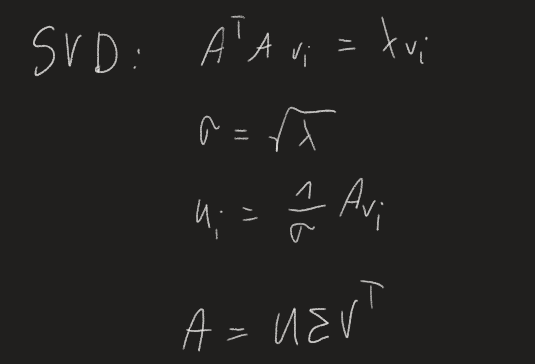 SVD: AᵀA vᵢ = λvᵢ
σ = √λ
uᵢ = 1/σ Avᵢ
A = UΣVᵀ